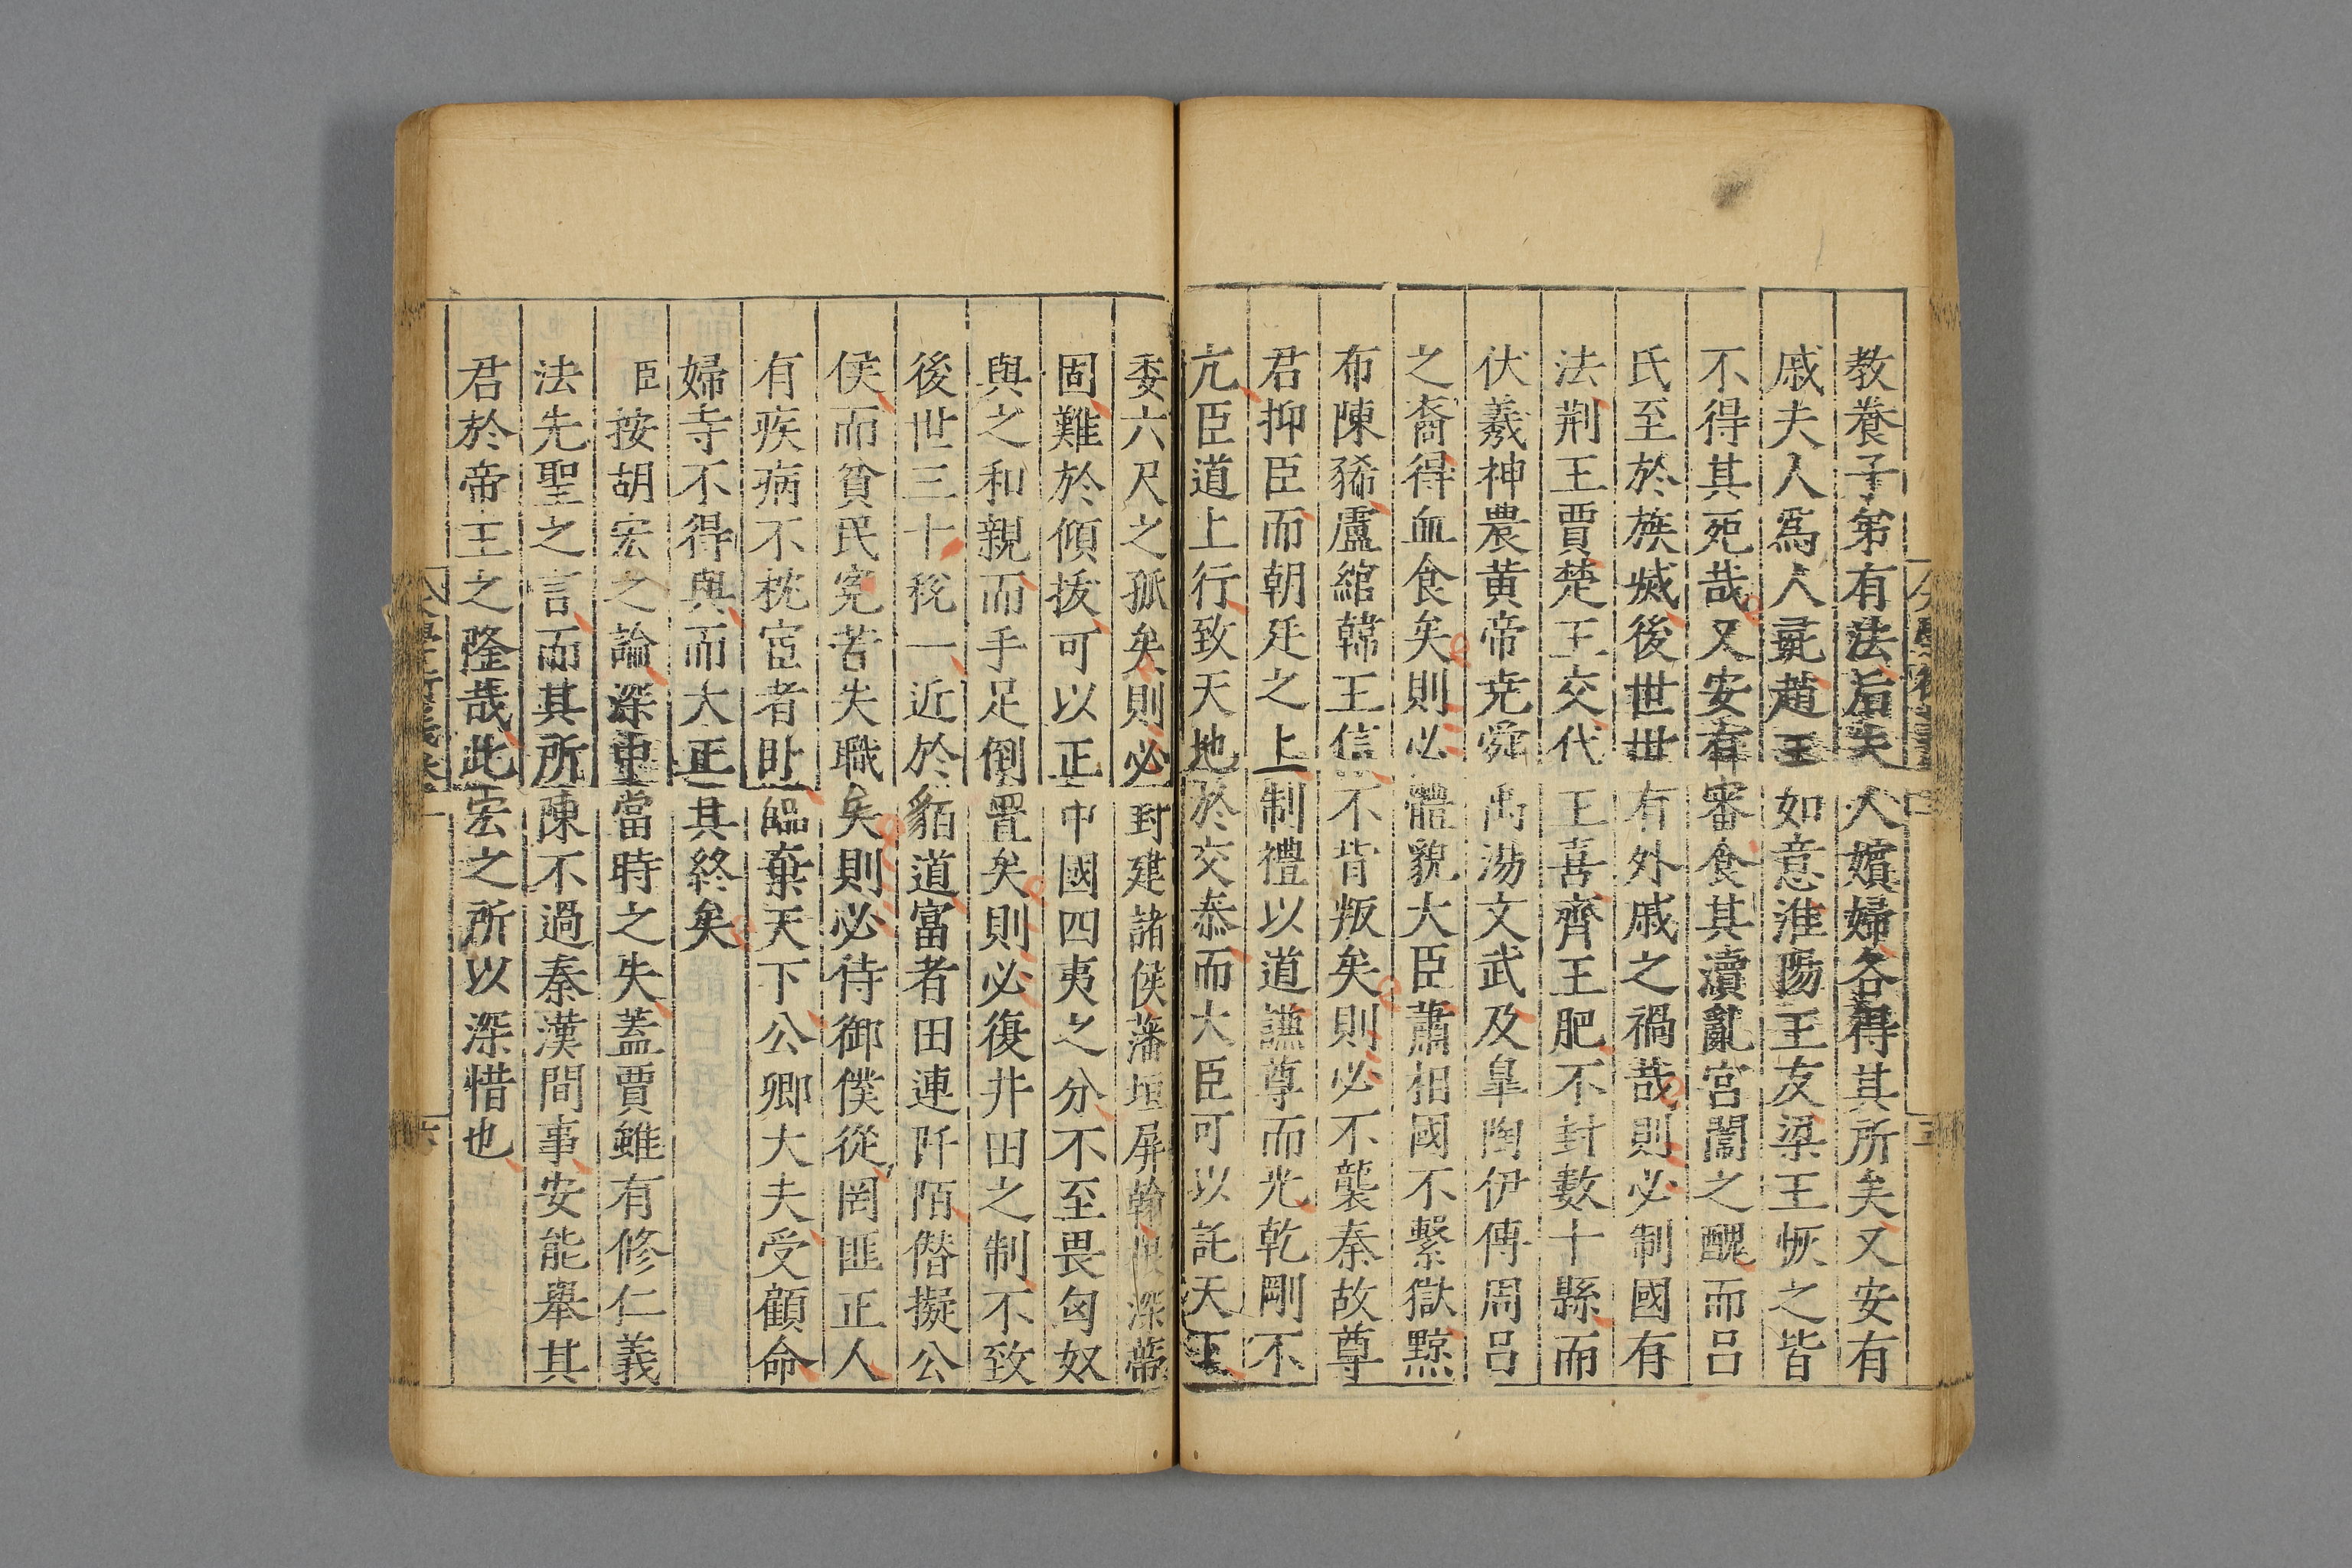 教養子弟有法后夫人嬪婦各得其所矣又安有
戚夫人爲人彘趙王如意淮陽王友梁王恢之皆
不得其死哉又安有審食其瀆亂宮闈之醜而呂
氏至於族滅後世世有外戚之禍哉則必制國有
法荆王賈楚王交代王喜齊王肥不封數十縣而
伏羲神農黃帝尭舜禹湯文武及臯陶伊傅周呂
之裔得血食矣則必體貌大臣蕭相國不繫獄黥
布陳豨盧綰韓王信不背叛矣則必不襲秦故尊
君抑臣而朝廷之上制禮以道謙尊而光乾剛不
亢臣道上行致天地於交泰而大臣可以託天下
委六尺之孤矣則必封建諸侯藩垣屏翰根深蔕
固難於傾拔可以正中國四夷之分不至畏匈奴
與之和親而手足倒置矣則必復井田之制不致
後世三十稅一近於貊道富者田連阡陌僭擬公
侯而貧民寃苦失職矣則必待御僕從罔匪正人
有疾病不枕宦者卧臨棄天下公卿大夫受顧命
婦寺不得與而大正其終矣
臣按胡宏之論深惜當時之失蓋賈雖有修仁義
法先聖之言而其所陳不過秦漢間事安能舉其
君於帝王之隆哉此宏之所以深惜也